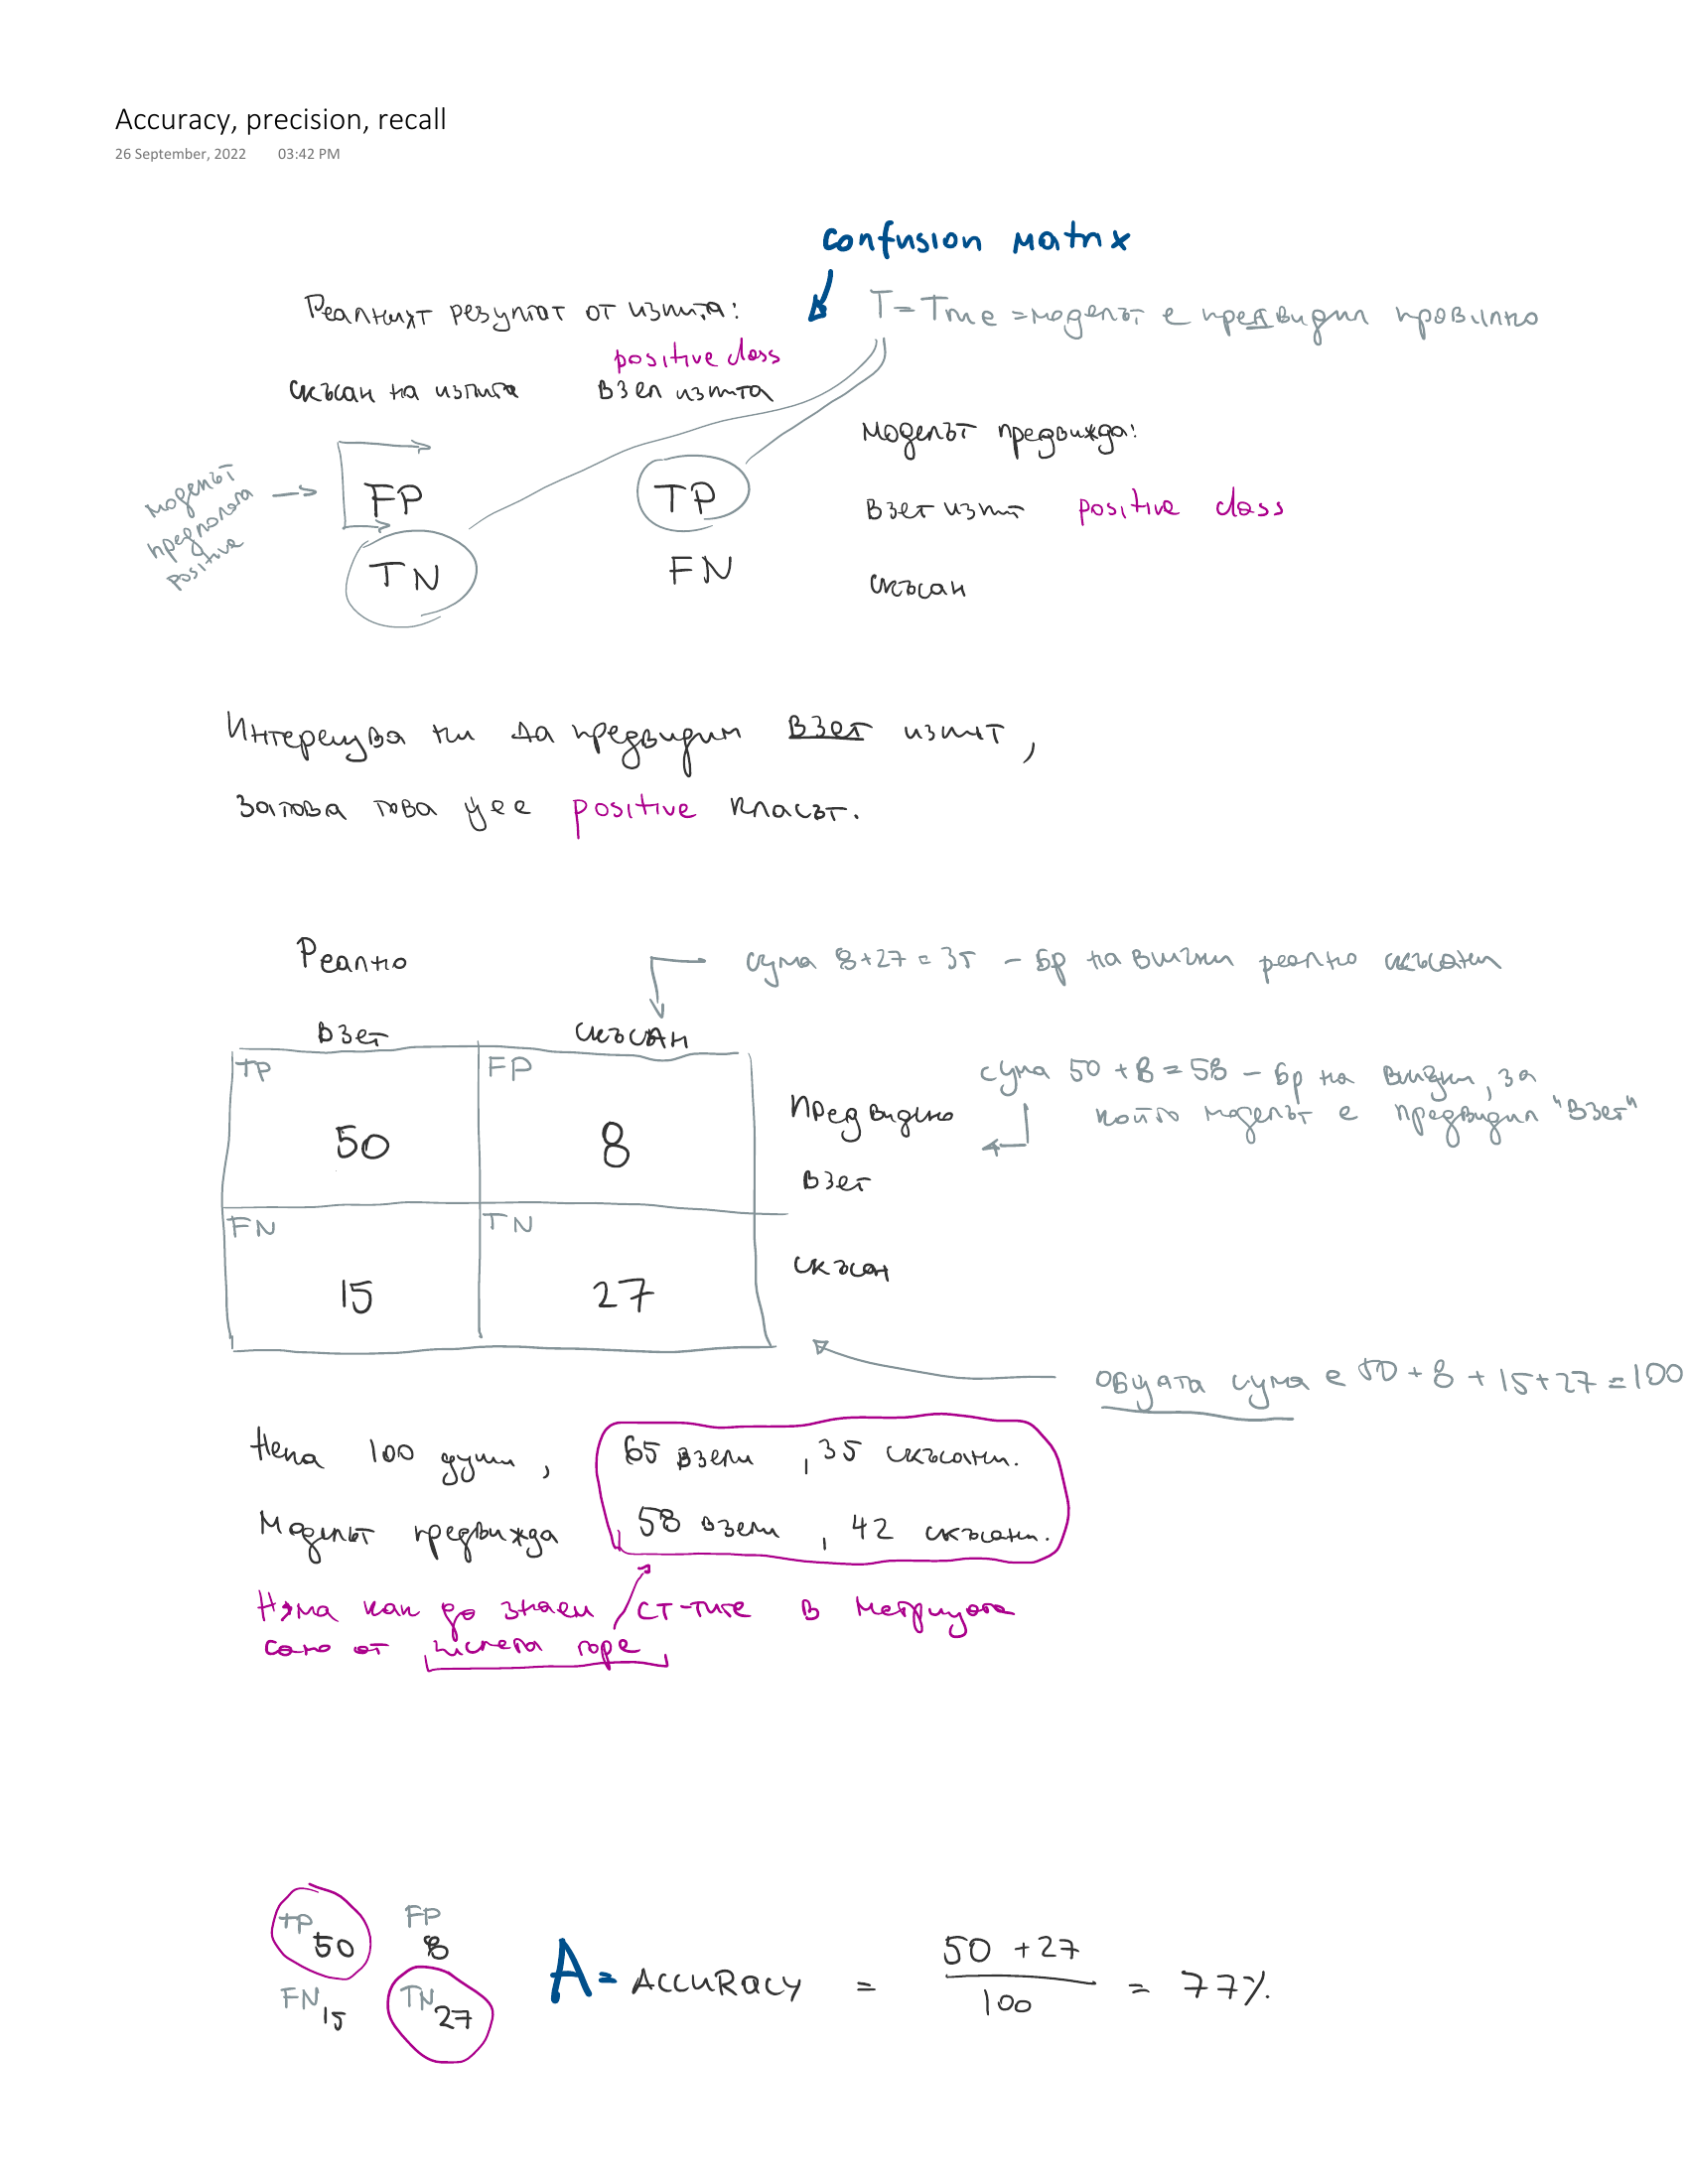 Accuracy, precision, recall
26 September, 2022 03:42 PM
confusion matrix
Реалният резултат от изпита:
T = True = моделът е предвидил правилно
positive class
скъсан на изпита
взел изпита
моделът предвижда:
моделът
предполага
positive
FP
TP
взет изпит positive class
TN
FN
скъсан
Интересува ни да предвидим взет изпит,
затова това ще е positive класът.
Реално
сума 8+27=35 – бр на всички реално скъсани
взет
скъсан
TP
FP
50
8
Предвидено
взет
сума 50+8=58 – бр на всички, за
който моделът е предвидил "взет"
FN
TN
15
27
скъсан
общата сума е 50+8+15+27=100
Нека 100 души, 65 взели, 35 скъсани.
Моделът предвижда 58 взели, 42 скъсани.
Няма как да знаем ст-тите в матрицата
само от числата горе
TP 50
FP 8
FN 15
TN 27
A = Accuracy = 50 + 27 / 100 = 77%.